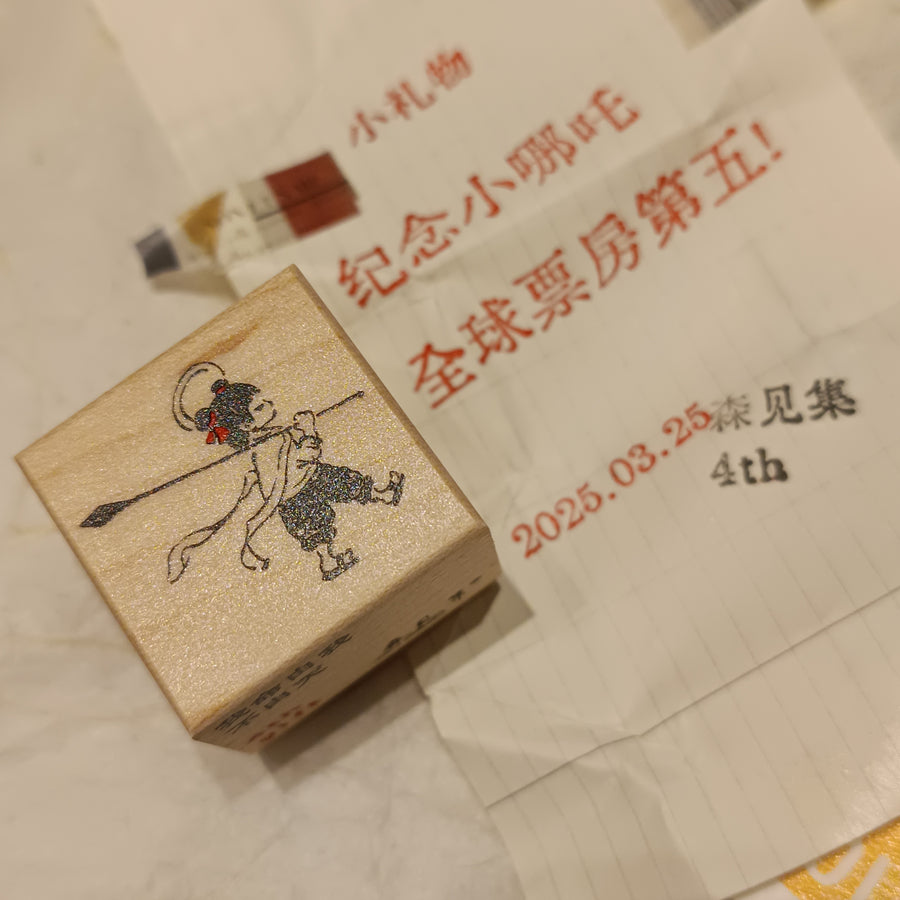 小礼物
纪念小哪吒
全球票房第五!
2025.03.25
森见集
4th